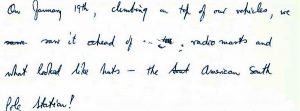 On January 19th, climbing on top of our vehicles, we
saw it ahead of ... : radio masts and
what looked like huts — the American South
Pole Station!